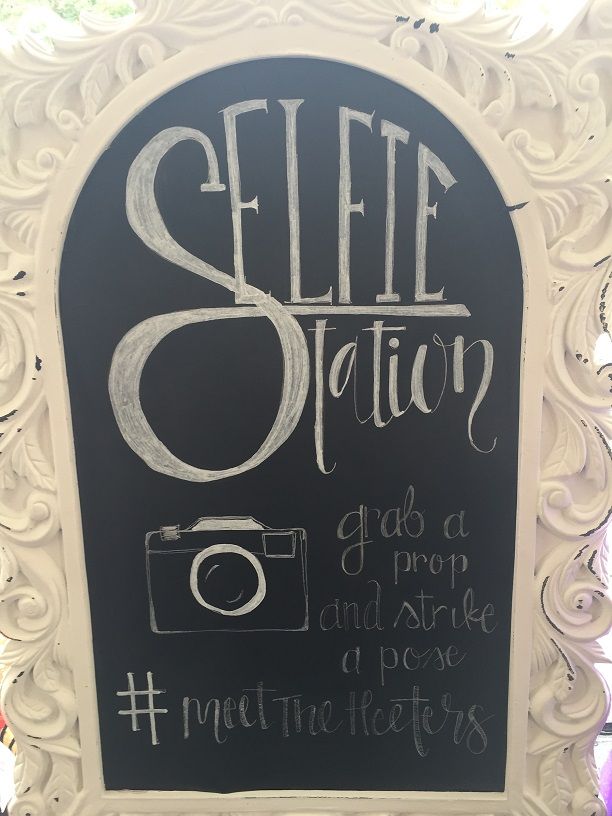 SELFIE
Station
grab a
prop
and strike
a pose
# meet The Heeters